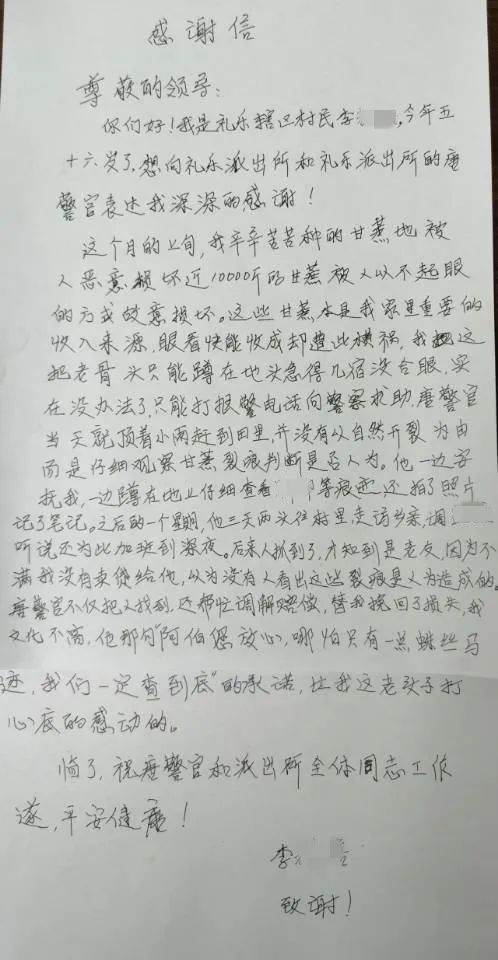 感谢信
尊敬的领导：
你们好！我是礼乐辖区村民李，今年五
十六岁了，想向礼乐派出所和礼乐派出所的唐
警官表达我深深的感谢！
这个月的上旬，我辛辛苦苦种的甘蔗地被
人恶意损坏近10000斤的甘蔗被人以不起眼
的方式故意损坏。这些甘蔗，本是我家里重要的
收入来源，眼看快能收成却遭此横祸，我这
把老骨头只能蹲在地头急得几宿没合眼，实
在没办法了，只能打报警电话向警察求助，唐警官
当天就顶着小雨赶到田里，并没有以自然开裂为由
而是仔细观察甘蔗裂痕判断是否人为。他一边安
抚我，一边蹲在地上仔细查看等痕迹还拍了照片
记了笔记。之后的一个星期，他三天两头往村里，走访乡亲，调
听说还为此加班到深夜。后来人抓到了，才知到是老友，因为不
满我没有卖货给他，以为没有人看出这些裂痕是人为造成的。
唐警官不仅把人找到，还帮忙调解赔偿，替我挽回了损失，我
文化不高，他那句“阿伯您放心，哪怕只有一点蛛丝马
迹，我们一定查到底”的承诺，让我这老头子打
心底的感动的。
临了，祝唐警官和派出所全体同志工作
遂，平安健康！
李
致谢！